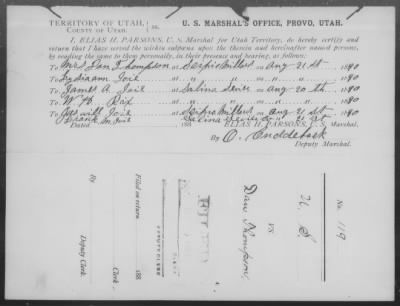 TERRITORY OF UTAH,
COUNTY OF UTAH.
ss.
U. S. MARSHAL'S OFFICE, PROVO, UTAH.
I, ELIAS H. PARSONS, U. S. Marshal for Utah Territory, do hereby certify and
return that I have served the within subpœna upon the therein and hereinafter named persons,
by reading the same to them personally, in their presence and hearing, as follows:
To Mrs Dan Thompson at Scipio Millard on Aug 21st 1890
To Lydiann at " " on " " 1890
To James A at Salina Sevier on Aug 20th 1890
To W H at " " on " " 1890
To Jos will at Scipio Millard on Aug 21st 1890
Salina Sevier on " 21st
Dated 188 ELIAS H. PARSONS, U. S. Marshal.
By O.
Deputy Marshal.
No. 119
U. S
VS.
Dan Thompson
FILED
Filed on return
188
Clerk.
Deputy Clerk.